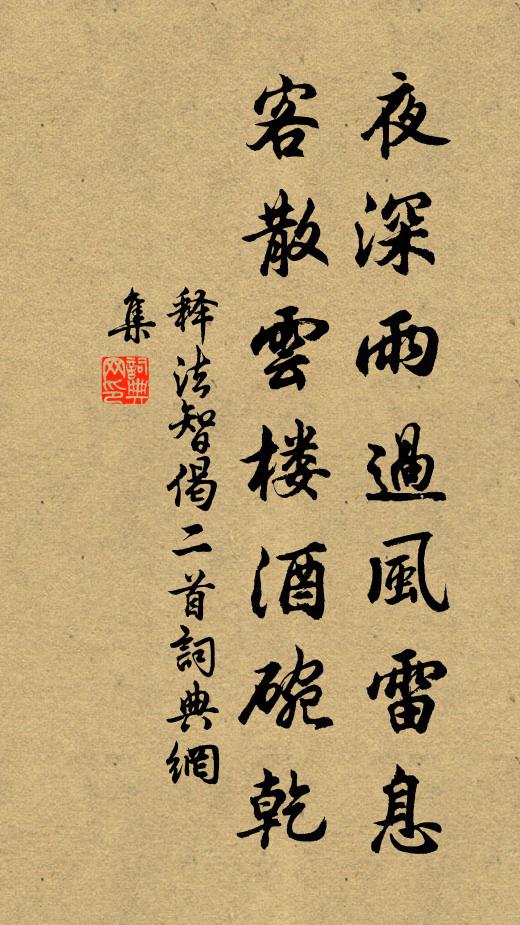 夜深雨過風雷息
客散雲楼酒碗乾
释法智偈二首詞典網
集
詞典
网印